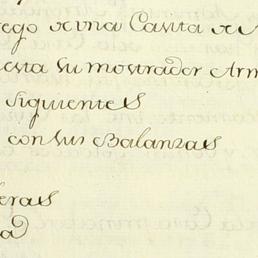 rego de una Casita de
esta su mostrador Arm
Siguientes
con sus Balanzas
eras
a